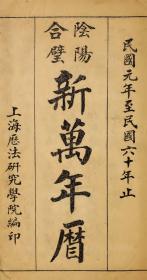 民國元年至民國六十年止
陰陽
合璧
新萬年曆
上海曆法研究學院編印